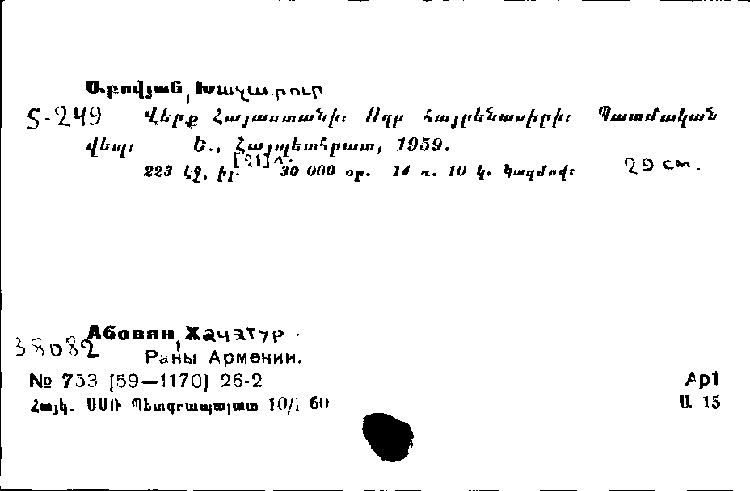 Աբովյան, Խաչատուր
Տ-249 Վերք Հայաստանի։ Ողբ հայրենասիրի։ Պատմական
վեպ։ Ե., Հայպետհրատ, 1959.
223 էջ, իլ. [21] 30 000 օր. 14 ռ. 10 կ. կազմով։ 29 cm.
Абовян, Хачатур
38082 Раны Армении.
№ 753 [59—1170] 26-2 Ар1
Հայկ. ՍՍՌ Պետգրապալատ 10/I 60 Ա 15